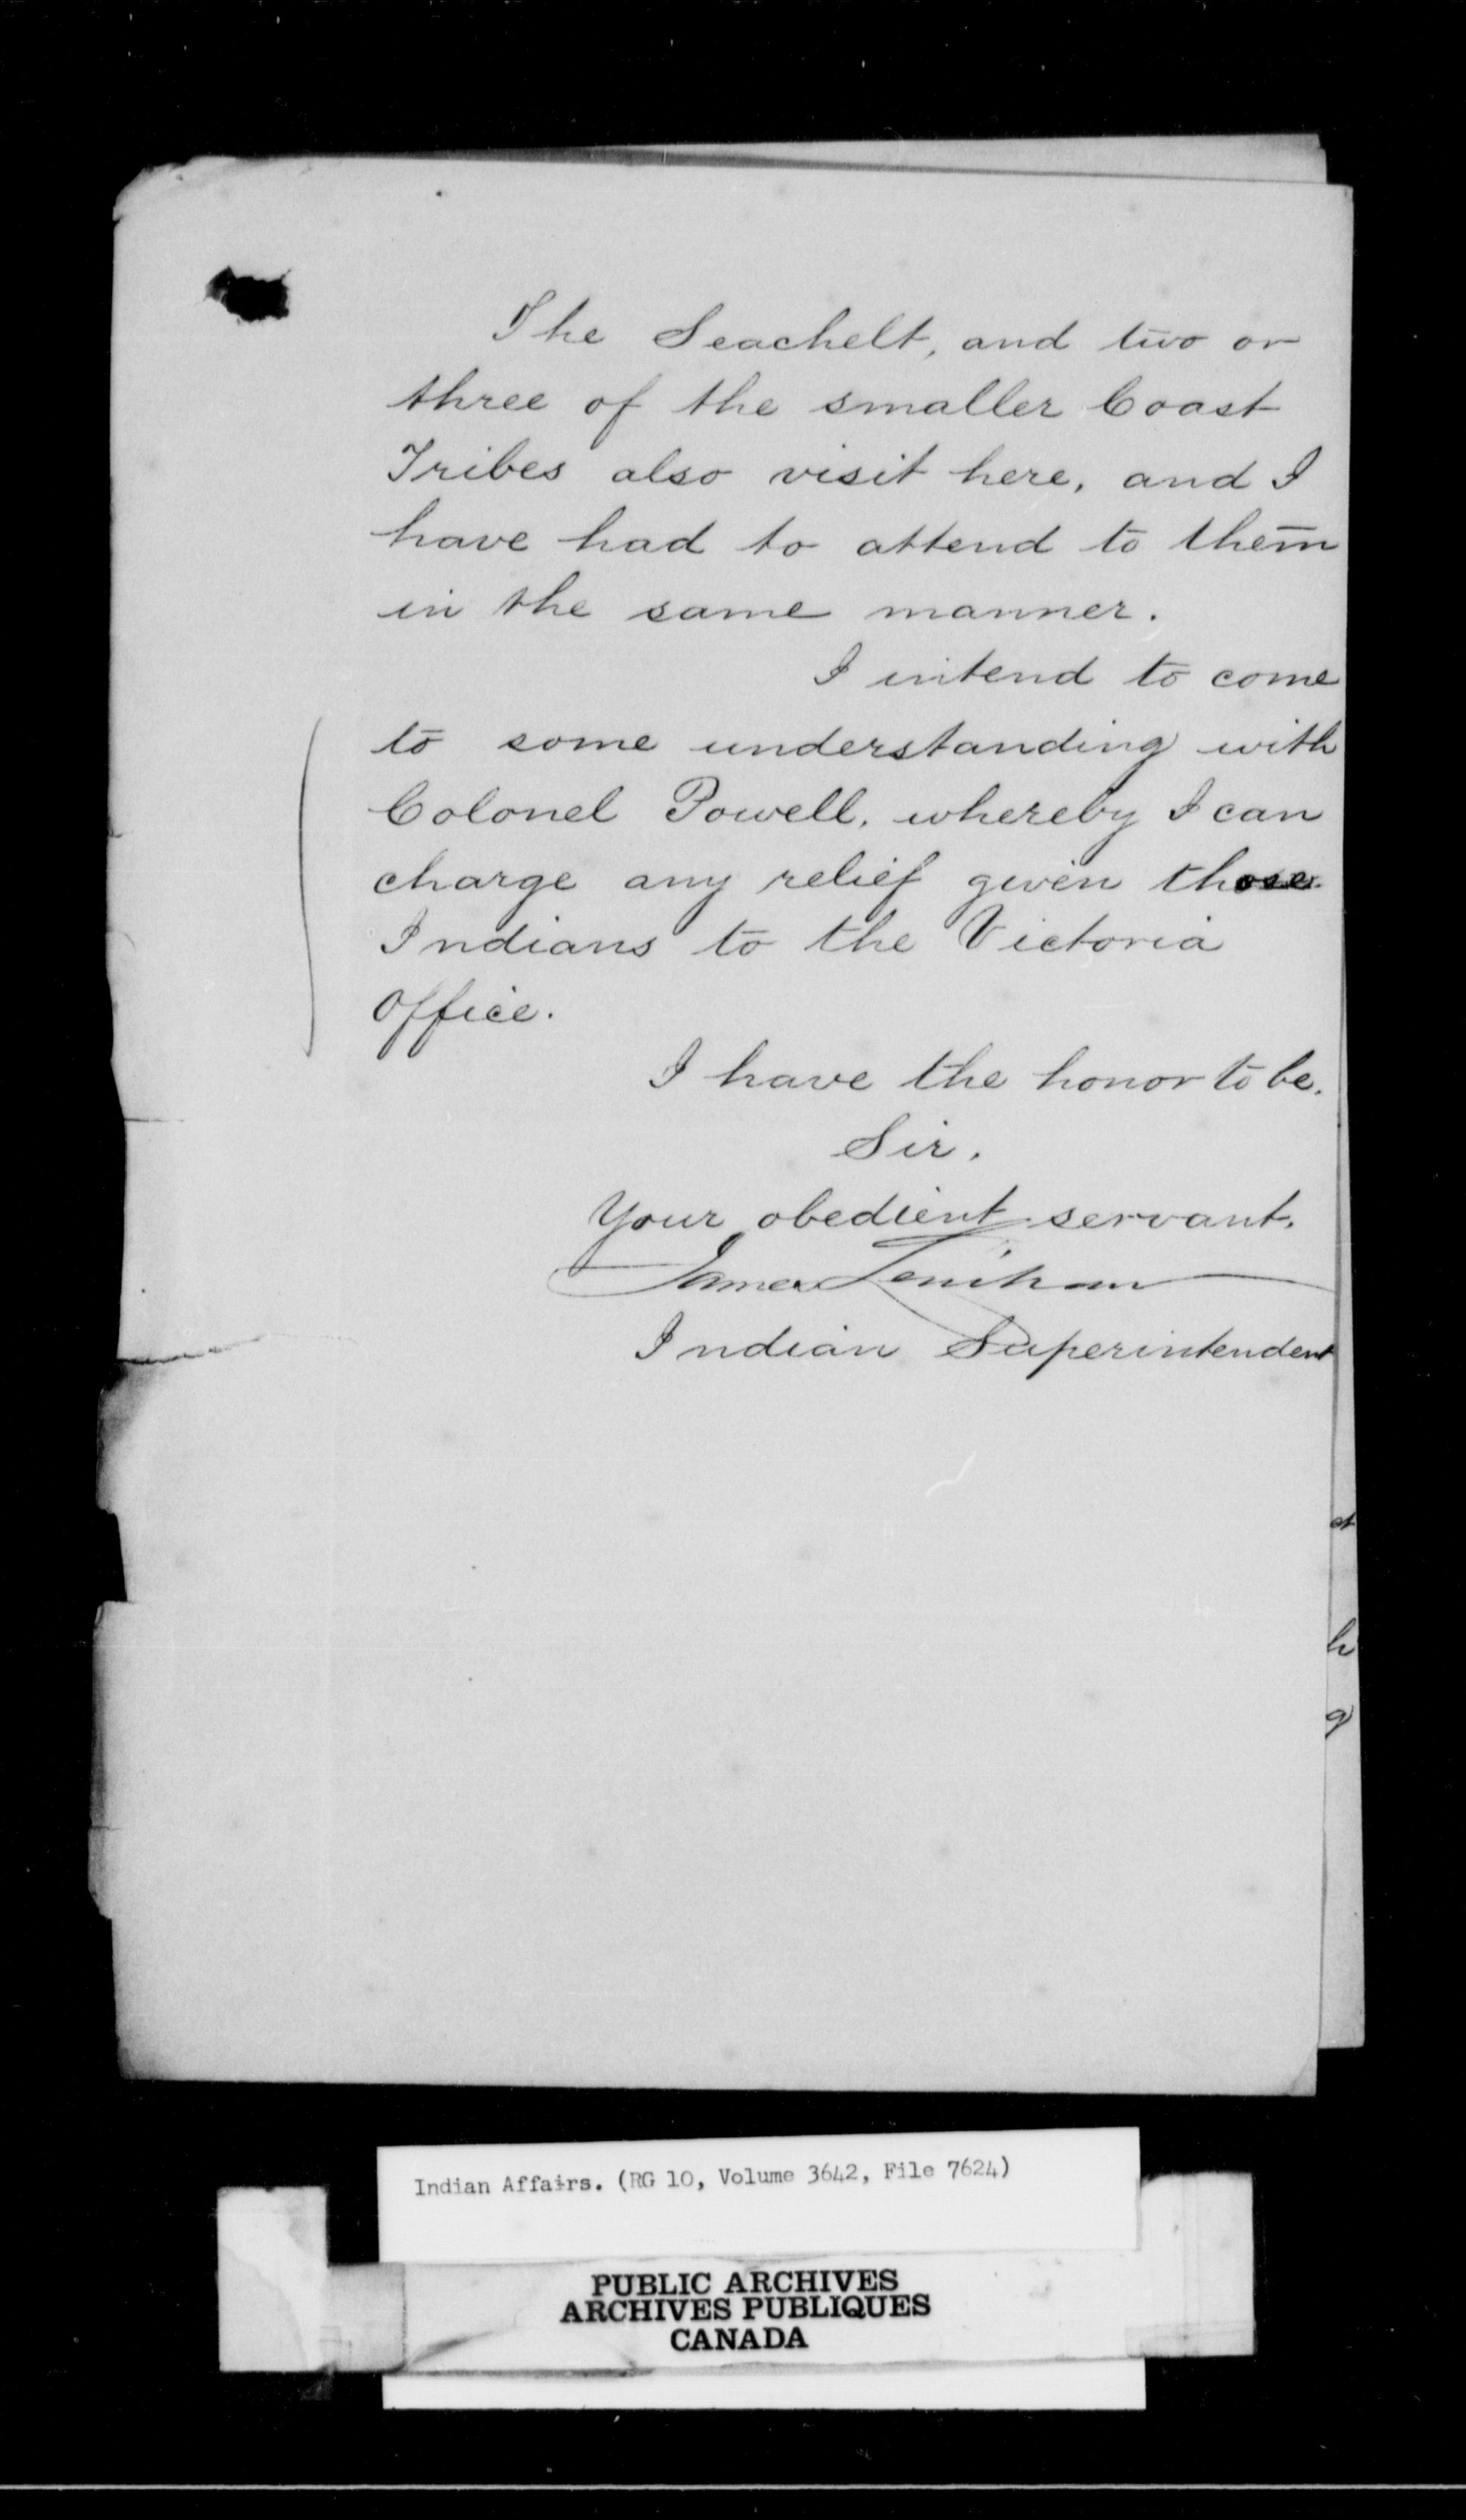 The Seachelt, and two or
three of the smaller Coast
Tribes also visit here, and I
have had to attend to them
in the same manner.
I intend to come
to some understanding with
Colonel Powell, whereby I can
charge any relief given those
Indians to the Victoria
Office.
I have the honor to be.
Sir.
Your obedient servant.
James Lenihan
Indian Superintendent
h
g
Indian Affairs. (RG 10, Volume 3642, File 7624)
PUBLIC ARCHIVES
ARCHIVES PUBLIQUES
CANADA